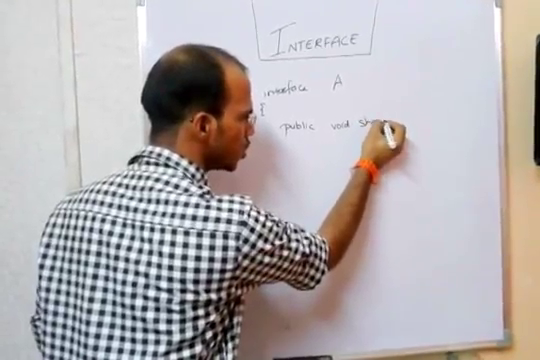 INTERFACE
interface A
{
public void sh